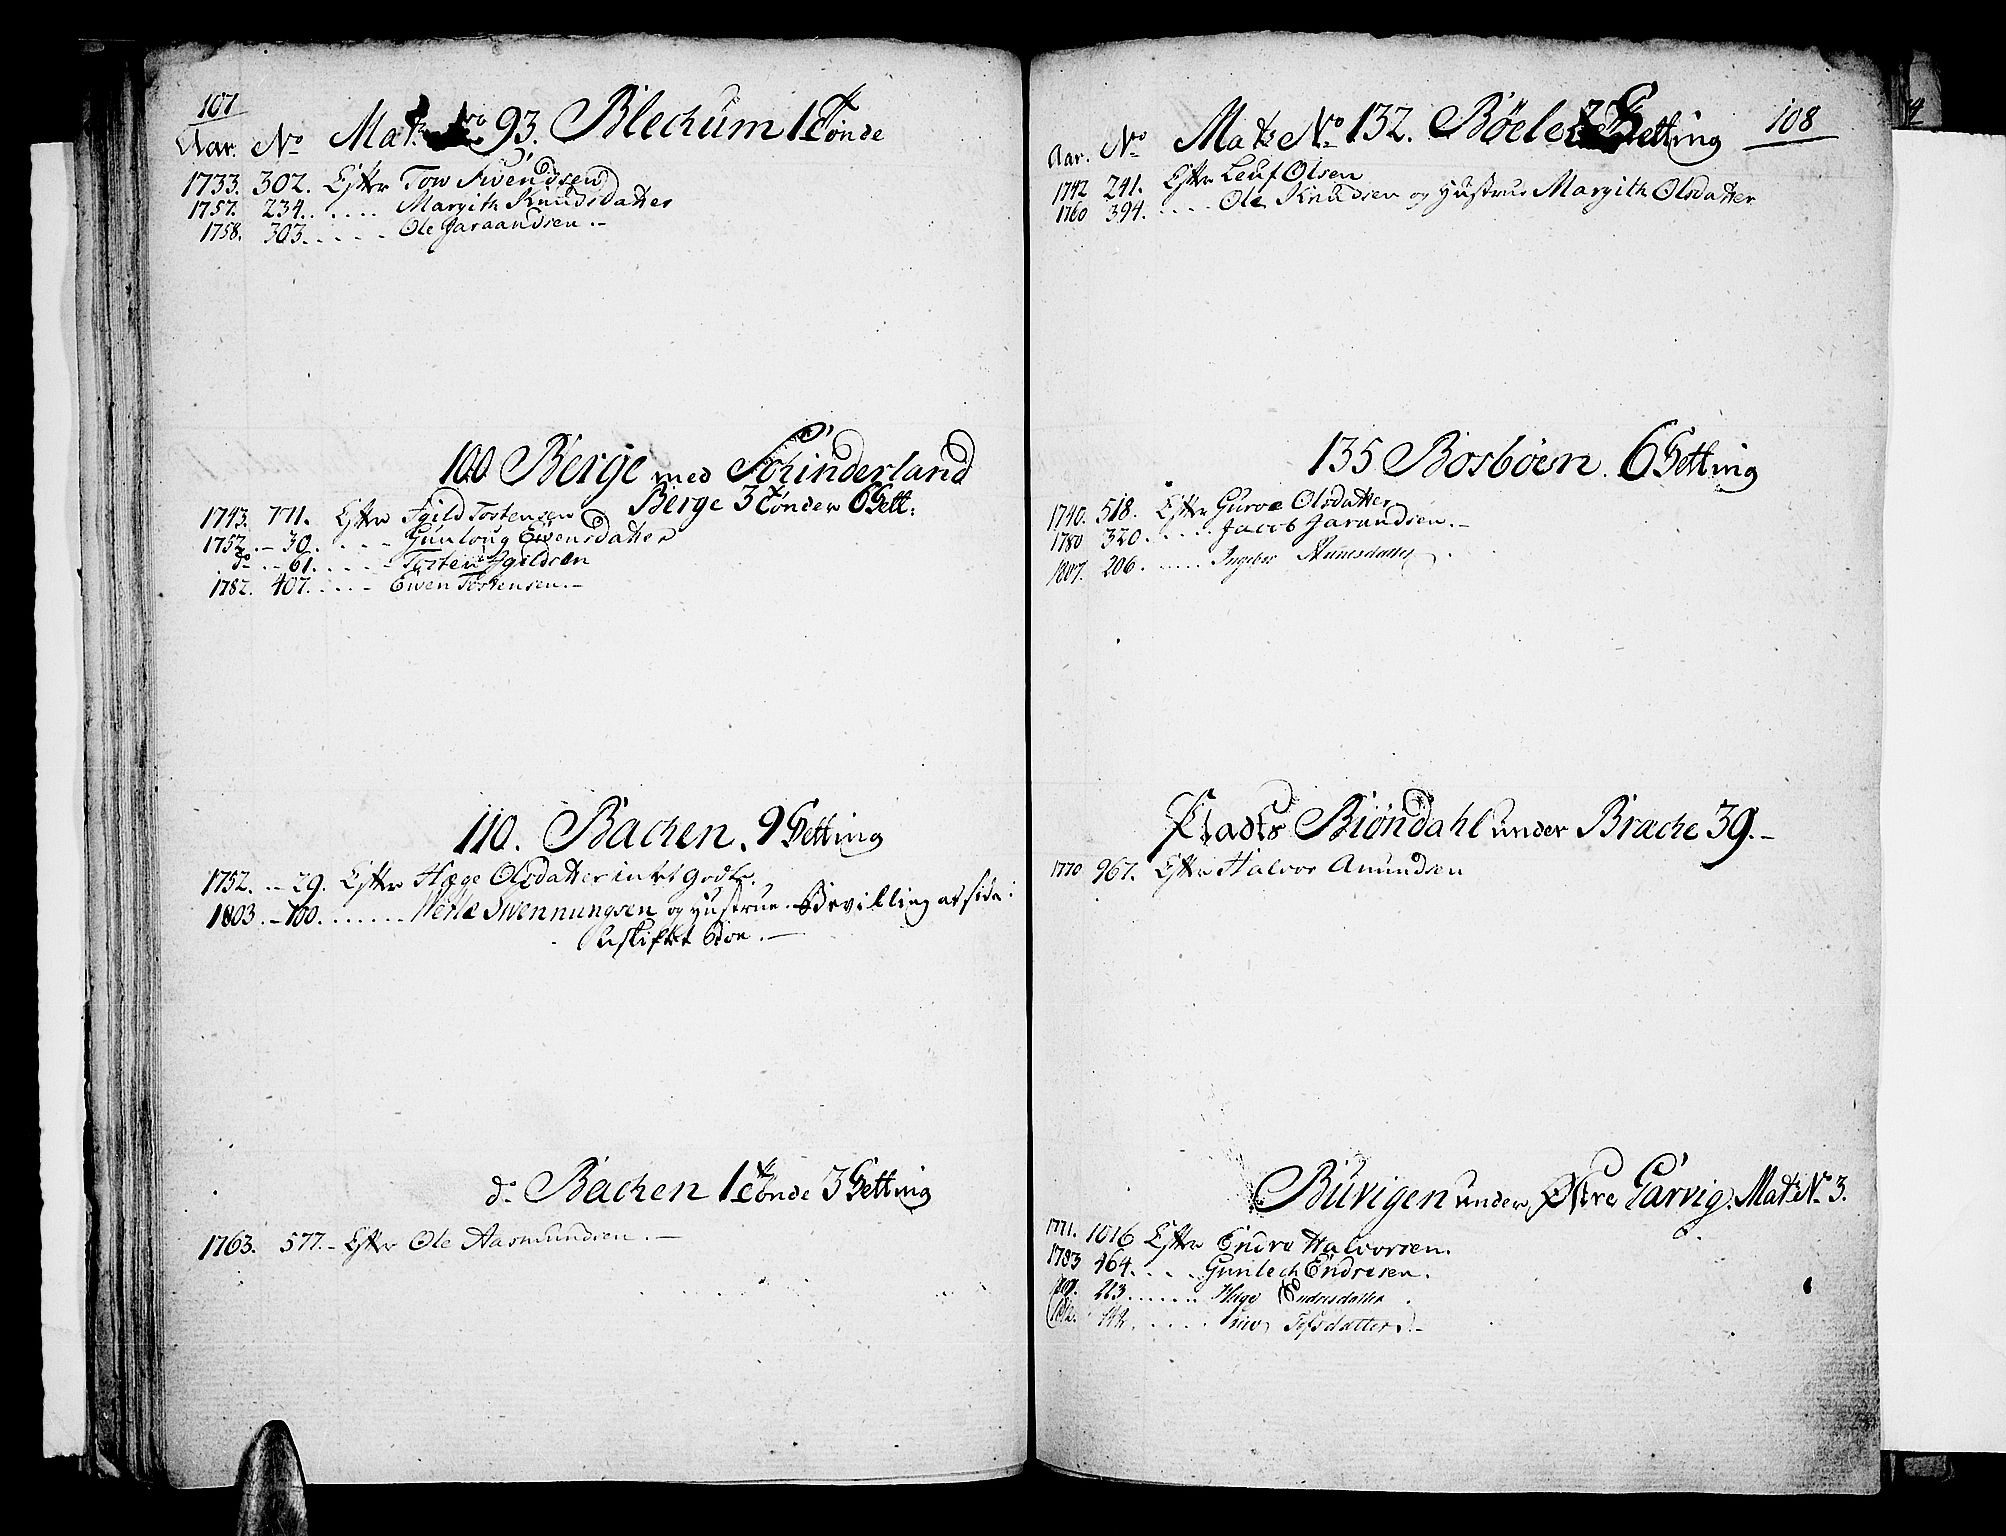 107
Aar. No Matr No 93. Blechum 1 Tønde
1733. 302. Efter Tow Swendsen
1757. 234. . . . . . Margith Knudsdatter
1758. 303. . . . . Ole Jaraandsen. -
100 Berge med Schinderland
Berge 3 Tønder 6 Sett:
1743. 771. Efter Tostensen
1752. - 30. . . . . Gunloug Ewensdatter
do - 61. . . . . Tosten
1782. 407. . . . . Ewen Tostensen. -
110. Bachen. 9 Setting
1752. - 29. Efter Hæge Olsdatter intet Gods.
1803. - 100. . . . . . . Swennungsen og Hustrue. Bevilling at side i
Uskiftet Boe. -
do Bachen 1 Tønde 3 Setting
1763. 577. - Efter Ole Aasmundsen. -
108
Aar. No Matr No 132. Bøele Setting
1742 241. Efter Leuf Olsen
1760 394. . . . . Ole Knudsen og Hustrue Margith Olsdatter
135 Bosbøen. 6 Setting
1740. 518. Efter Guroe Olsdatter
1780 320. . . . . . Jacob Jarandsen. -
1807. 206. . . . . . Ingebor
Plads Biøndahl under Brache 39. -
1770 967. Efter Halvor Amundsen
Buvigen under Østre Garvig. Matr No 3.
1771. 1016 Efter Endre Halvorsen.
1783 464. . . . . Gunlech Endresen.
213 . . . . . . Hæge Endresdatter.
. . . . . .